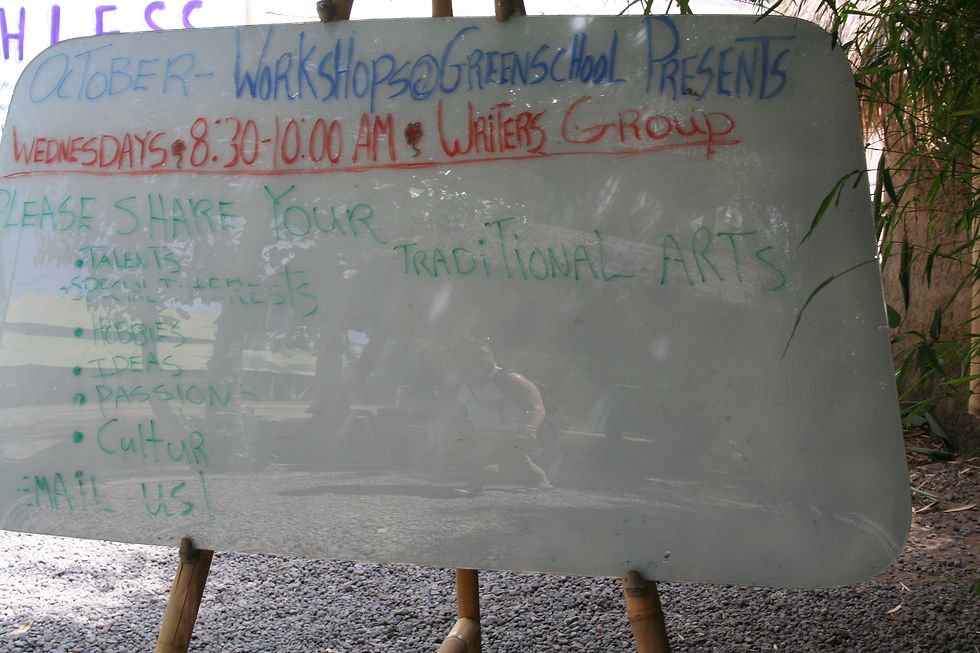 HLESS
OCTOBER - WORKSHOPS@GREENSCHOOL PRESENTS
WEDNESDAYS • 8:30-10:00 AM • WRITERS GROUP
PLEASE SHARE YOUR
• TALENTS
TRADITIONAL ARTS
• SPECIAL INTERESTS
• HOBBIES
• IDEAS
• PASSIONS
• CULTUR
EMAIL US!